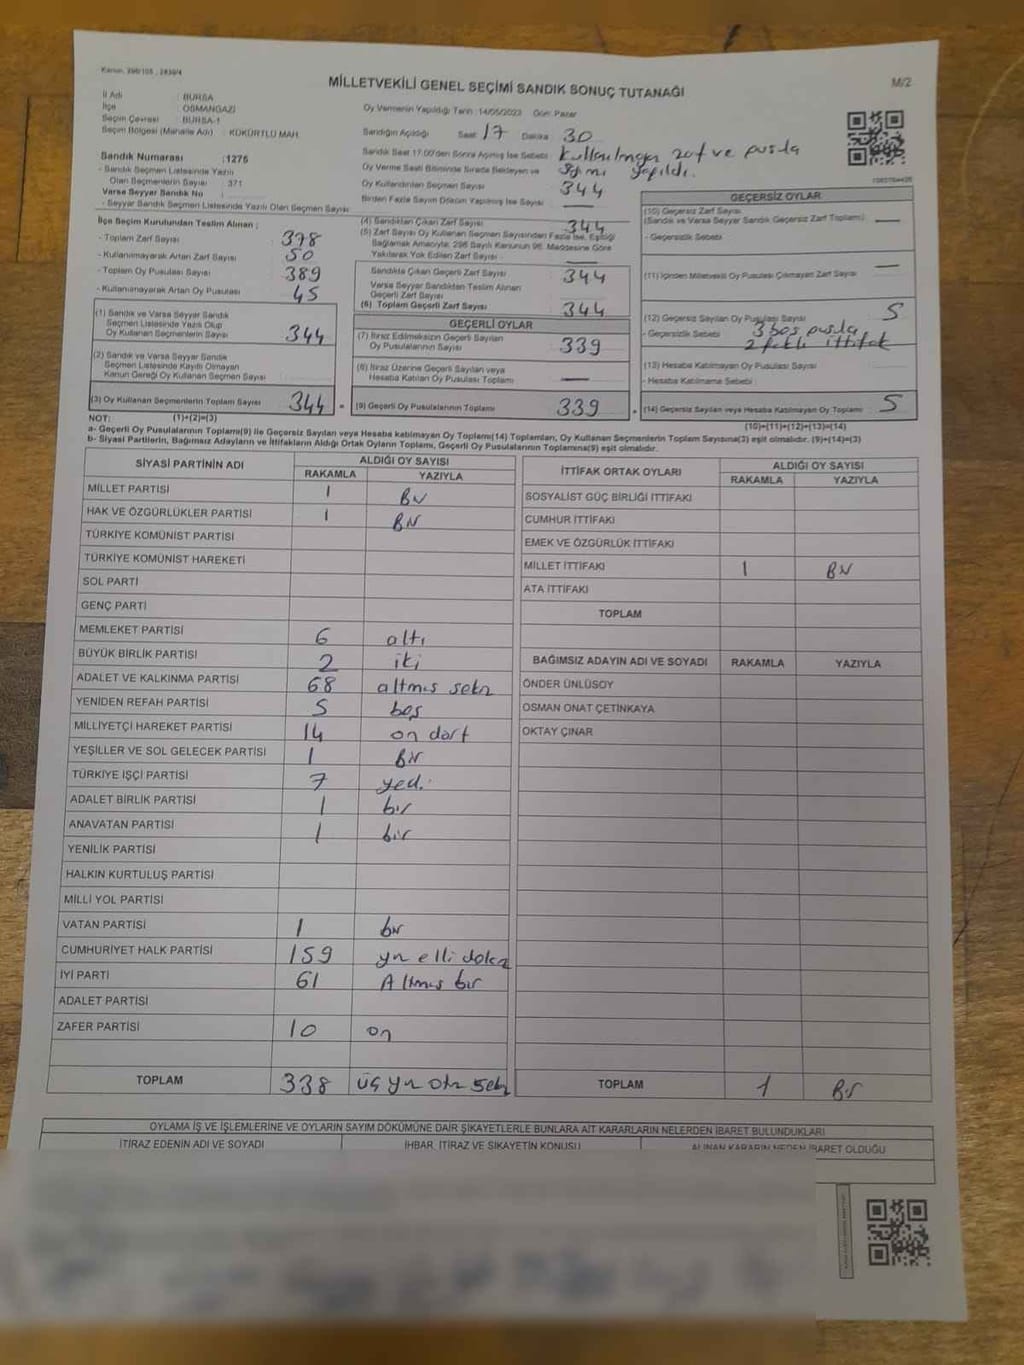 Kanun: 298/105 ; 2839/4
MİLLETVEKİLİ GENEL SEÇİMİ SANDIK SONUÇ TUTANAĞI
M/2
İl Adı : BURSA
İlçe : OSMANGAZİ
Seçim Çevresi : BURSA-1
Seçim Bölgesi (Mahalle Adı) : KÜKÜRTLÜ MAH.
Sandık Numarası : 1276
- Sandık Seçmen Listesinde Yazılı
Olan Seçmenlerin Sayısı : 371
Varsa Seyyar Sandık No :
- Seyyar Sandık Seçmen Listesinde Yazılı Olan Seçmen Sayısı:
Oy Vermenin Yapıldığı Tarih : 14/05/2023 Gün: Pazar
Sandığın Açıldığı Saat 17 Dakika 30
Sandık Saat 17:00'den Sonra Açılmış İse Sebebi kullanılmayan zarf ve pusula
sayımı yapıldı.
Oy Verme Saati Bitiminde Sırada Bekleyen ve
Oy Kullandırılan Seçmen Sayısı 344
Birden Fazla Sayım Döküm Yapılmış İse Sayısı —
İlçe Seçim Kurulundan Teslim Alınan ;
- Toplam Zarf Sayısı 378
- Kullanılmayarak Artan Zarf Sayısı 50
- Toplam Oy Pusulası Sayısı 389
- Kullanılmayarak Artan Oy Pusulası 45
(1) Sandık ve Varsa Seyyar Sandık
Seçmen Listesinde Yazılı Olup
Oy Kullanan Seçmenlerin Sayısı 344
(2) Sandık ve Varsa Seyyar Sandık
Seçmen Listesinde Kayıtlı Olmayan
Kanun Gereği Oy Kullanan Seçmen Sayısı
(3) Oy Kullanan Seçmenlerin Toplam Sayısı 344 =
(4) Sandıktan Çıkan Zarf Sayısı 344
(5) Zarf Sayısı Oy Kullanan Seçmen Sayısından Fazla İse, Eşitliği
Bağlamak Amacıyla; 298 Sayılı Kanunun 98. Maddesine Göre
Yakılarak Yok Edilen Zarf Sayısı —
Sandıkta Çıkan Geçerli Zarf Sayısı 344
Varsa Seyyar Sandıktan Teslim Alınan
Geçerli Zarf Sayısı
(6) Toplam Geçerli Zarf Sayısı 344
GEÇERLİ OYLAR
(7) İtiraz Edilmeksizin Geçerli Sayılan
Oy Pusulalarının Sayısı 339
(8) İtiraz Üzerine Geçerli Sayılan veya
Hesaba Katılan Oy Pusulası Toplamı —
(9) Geçerli Oy Pusulalarının Toplamı 339
GEÇERSİZ OYLAR
(10) Geçersiz Zarf Sayısı
(Sandık ve Varsa Seyyar Sandık Geçersiz Zarf Toplamı) —
- Geçersizlik Sebebi
(11) İçinden Milletvekili Oy Pusulası Çıkmayan Zarf Sayısı —
(12) Geçersiz Sayılan Oy Pusulası Sayısı 5
- Geçersizlik Sebebi 3 boş pusula
2 farklı ittifak
(13) Hesaba Katılmayan Oy Pusulası Sayısı
- Hesaba Katılmama Sebebi
(14) Geçersiz Sayılan veya Hesaba Katılmayan Oy Toplamı 5
NOT: (1)+(2)=(3)
(10)+(11)+(12)+(13)=(14)
a- Geçerli Oy Pusulalarının Toplamı(9) ile Geçersiz Sayılan veya Hesaba katılmayan Oy Toplamı(14) Toplamları, Oy Kullanan Seçmenlerin Toplam Sayısına(3) eşit olmalıdır. (9)+(14)=(3)
b- Siyasi Partilerin, Bağımsız Adayların ve İttifakların Aldığı Ortak Oyların Toplamı, Geçerli Oy Pusulalarının Toplamına(9) eşit olmalıdır.
SİYASİ PARTİNİN ADI ALDIĞI OY SAYISI
RAKAMLA YAZIYLA
MİLLET PARTİSİ 1 Bir
HAK VE ÖZGÜRLÜKLER PARTİSİ 1 Bir
TÜRKİYE KOMÜNİST PARTİSİ
TÜRKİYE KOMÜNİST HAREKETİ
SOL PARTİ
GENÇ PARTİ
MEMLEKET PARTİSİ 6 altı
BÜYÜK BİRLİK PARTİSİ 2 iki
ADALET VE KALKINMA PARTİSİ 68 altmış sekiz
YENİDEN REFAH PARTİSİ 5 beş
MİLLİYETÇİ HAREKET PARTİSİ 14 on dört
YEŞİLLER VE SOL GELECEK PARTİSİ 1 Bir
TÜRKİYE İŞÇİ PARTİSİ 7 yedi
ADALET BİRLİK PARTİSİ 1 bir
ANAVATAN PARTİSİ 1 bir
YENİLİK PARTİSİ
HALKIN KURTULUŞ PARTİSİ
MİLLİ YOL PARTİSİ
VATAN PARTİSİ 1 bir
CUMHURİYET HALK PARTİSİ 159 yüz elli dokuz
İYİ PARTİ 61 Altmış bir
ADALET PARTİSİ
ZAFER PARTİSİ 10 on
TOPLAM 338 üç yüz otuz sekiz
İTTİFAK ORTAK OYLARI ALDIĞI OY SAYISI
RAKAMLA YAZIYLA
SOSYALİST GÜÇ BİRLİĞİ İTTİFAKI
CUMHUR İTTİFAKI
EMEK VE ÖZGÜRLÜK İTTİFAKI
MİLLET İTTİFAKI 1 Bir
ATA İTTİFAKI
TOPLAM
BAĞIMSIZ ADAYIN ADI VE SOYADI RAKAMLA YAZIYLA
ÖNDER ÜNLÜSOY
OSMAN ONAT ÇETİNKAYA
OKTAY ÇINAR
TOPLAM 1 Bir
OYLAMA İŞ VE İŞLEMLERİNE VE OYLARIN SAYIM DÖKÜMÜNE DAİR ŞİKAYETLERLE BUNLARA AİT KARARLARIN NELERDEN İBARET BULUNDUKLARI
İTİRAZ EDENİN ADI VE SOYADI İHBAR, İTİRAZ VE ŞİKAYETİN KONUSU ALINAN KARARIN NEDEN İBARET OLDUĞU